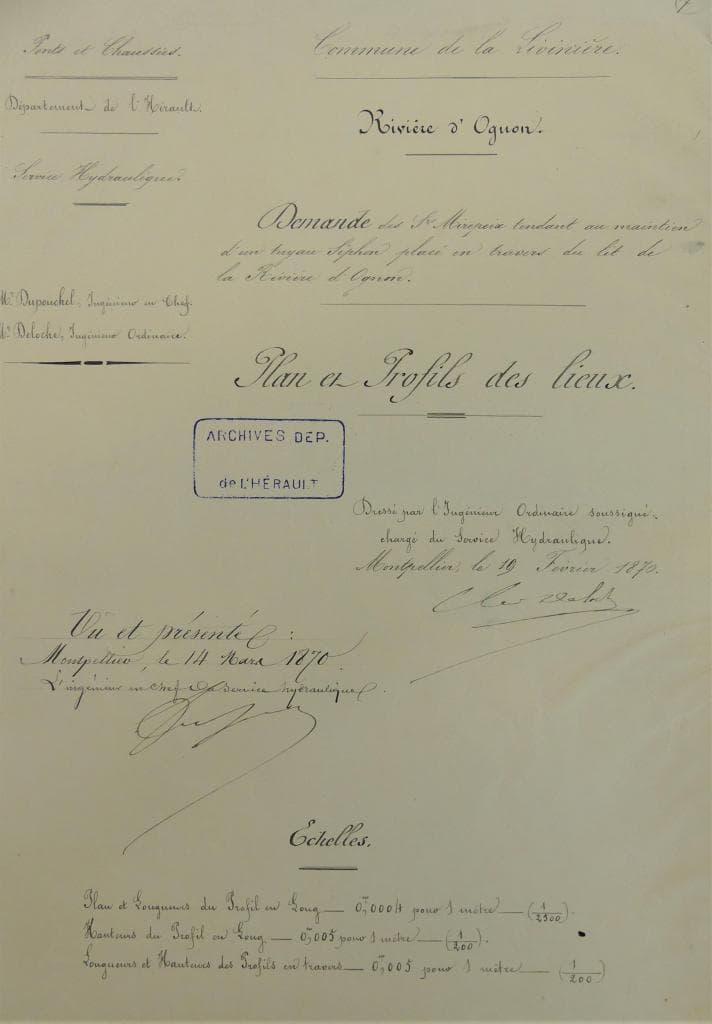 Ponts et Chaussées.
Département de l'Hérault.
Service Hydraulique.
Mr. Dupouchel, Ingénieur en Chef.
Mr. Deloche, Ingénieur Ordinaire.
Commune de la Livinière.
Rivière d'Ognon.
Demande des Srs Mirepeix tendant au maintien
d'un tuyau Siphon placé en travers du lit de
la Rivière d'Ognon.
Plan et Profils des lieux.
ARCHIVES DEP.
de L'HÉRAULT
Dressé par l'Ingénieur Ordinaire soussigné,
chargé du Service Hydraulique.
Montpellier, le 19 Février 1870.
Vu et présenté :
Montpellier, le 14 Mars 1870.
L'ingénieur en chef du Service hydraulique.
Echelles.
Plan et Longueurs du Profil en Long — 0m,0004 pour 1 mètre — (1/2500).
Hauteurs du Profil en Long — 0m,005 pour 1 mètre — (1/200).
Longueurs et Hauteurs des Profils en travers — 0m,005 pour 1 mètre — (1/200)